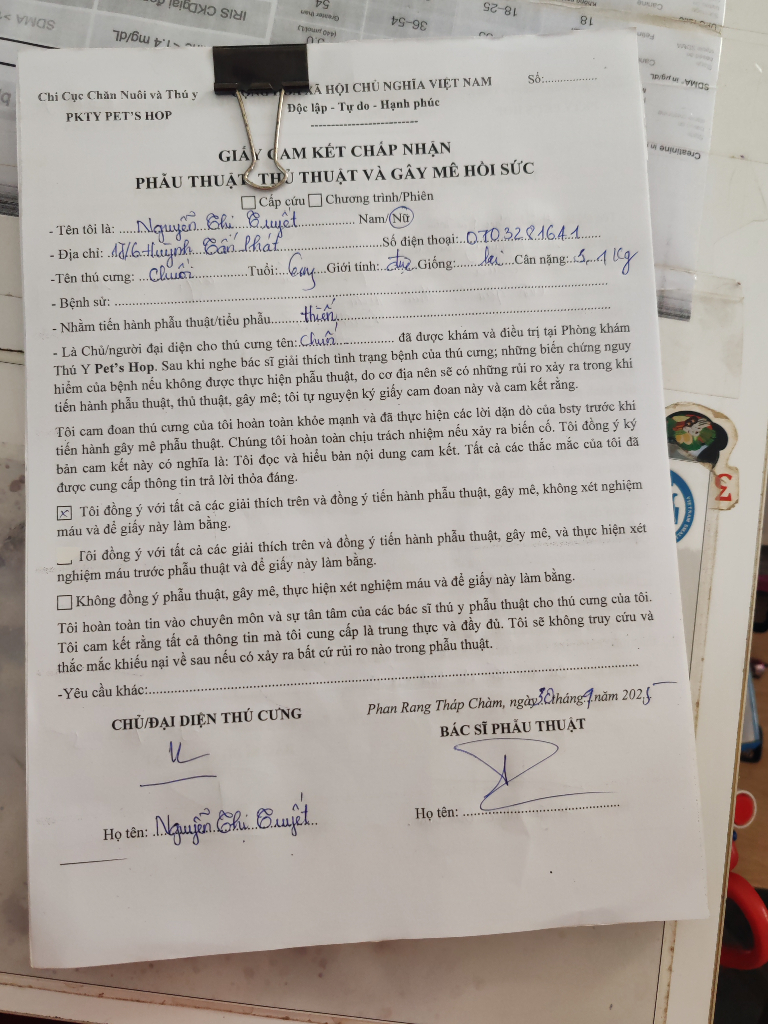 IRIS CKD
SDMA
< 1.4 mg/dL
54
36-54
18-25
18
SDMA, in µg/dL
Creatinine in
Chi Cục Chăn Nuôi và Thú y
XÃ HỘI CHỦ NGHĨA VIỆT NAM
Số:
PKTY PET'S HOP
Độc lập - Tự do - Hạnh phúc
GIẤY CAM KẾT CHẤP NHẬN
PHẪU THUẬT, THỦ THUẬT VÀ GÂY MÊ HỒI SỨC
Cấp cứu Chương trình/Phiên
- Tên tôi là: Nguyễn Thị Tuyết Nam/Nữ
- Địa chỉ: Huỳnh Tấn Phát Số điện thoại: 0703281641
-Tên thú cưng: Chuối Tuổi: Giới tính: đực Giống: lai Cân nặng: Kg
- Bệnh sử:
- Nhằm tiến hành phẫu thuật/tiểu phẫu thiến
- Là Chủ/người đại diện cho thú cưng tên: Chuối đã được khám và điều trị tại Phòng khám
Thú Y Pet's Hop. Sau khi nghe bác sĩ giải thích tình trạng bệnh của thú cưng; những biến chứng nguy
hiểm của bệnh nếu không được thực hiện phẫu thuật, do cơ địa nên sẽ có những rủi ro xảy ra trong khi
tiến hành phẫu thuật, thủ thuật, gây mê; tôi tự nguyện ký giấy cam đoan này và cam kết rằng.
Tôi cam đoan thú cưng của tôi hoàn toàn khỏe mạnh và đã thực hiện các lời dặn dò của bsty trước khi
tiến hành gây mê phẫu thuật. Chúng tôi hoàn toàn chịu trách nhiệm nếu xảy ra biến cố. Tôi đồng ý ký
bản cam kết này có nghĩa là: Tôi đọc và hiểu bản nội dung cam kết. Tất cả các thắc mắc của tôi đã
được cung cấp thông tin trả lời thỏa đáng.
Tôi đồng ý với tất cả các giải thích trên và đồng ý tiến hành phẫu thuật, gây mê, không xét nghiệm
máu và để giấy này làm bằng.
Tôi đồng ý với tất cả các giải thích trên và đồng ý tiến hành phẫu thuật, gây mê, và thực hiện xét
nghiệm máu trước phẫu thuật và để giấy này làm bằng.
Không đồng ý phẫu thuật, gây mê, thực hiện xét nghiệm máu và để giấy này làm bằng.
Tôi hoàn toàn tin vào chuyên môn và sự tân tâm của các bác sĩ thú y phẫu thuật cho thú cưng của tôi.
Tôi cam kết rằng tất cả thông tin mà tôi cung cấp là trung thực và đầy đủ. Tôi sẽ không truy cứu và
thắc mắc khiếu nại về sau nếu có xảy ra bất cứ rủi ro nào trong phẫu thuật.
-Yêu cầu khác:
Phan Rang Tháp Chàm, ngày 30 tháng 9 năm 2025
CHỦ/ĐẠI DIỆN THÚ CƯNG
BÁC SĨ PHẪU THUẬT
Họ tên: Nguyễn Thị Tuyết
Họ tên: